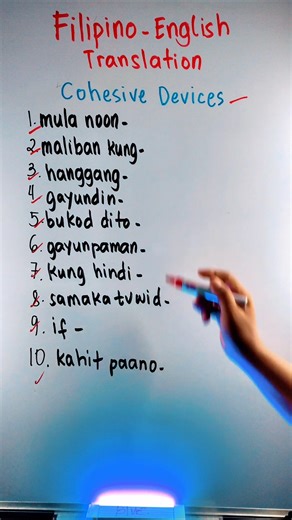 Filipino - English
Translation
Cohesive Devices
1. mula noon-
2. maliban kung-
3. hanggang-
4. gayundin-
5. bukod dito-
6. gayunpaman-
7. kung hindi-
8. samakatuwid-
9. if -
10. kahit paano-